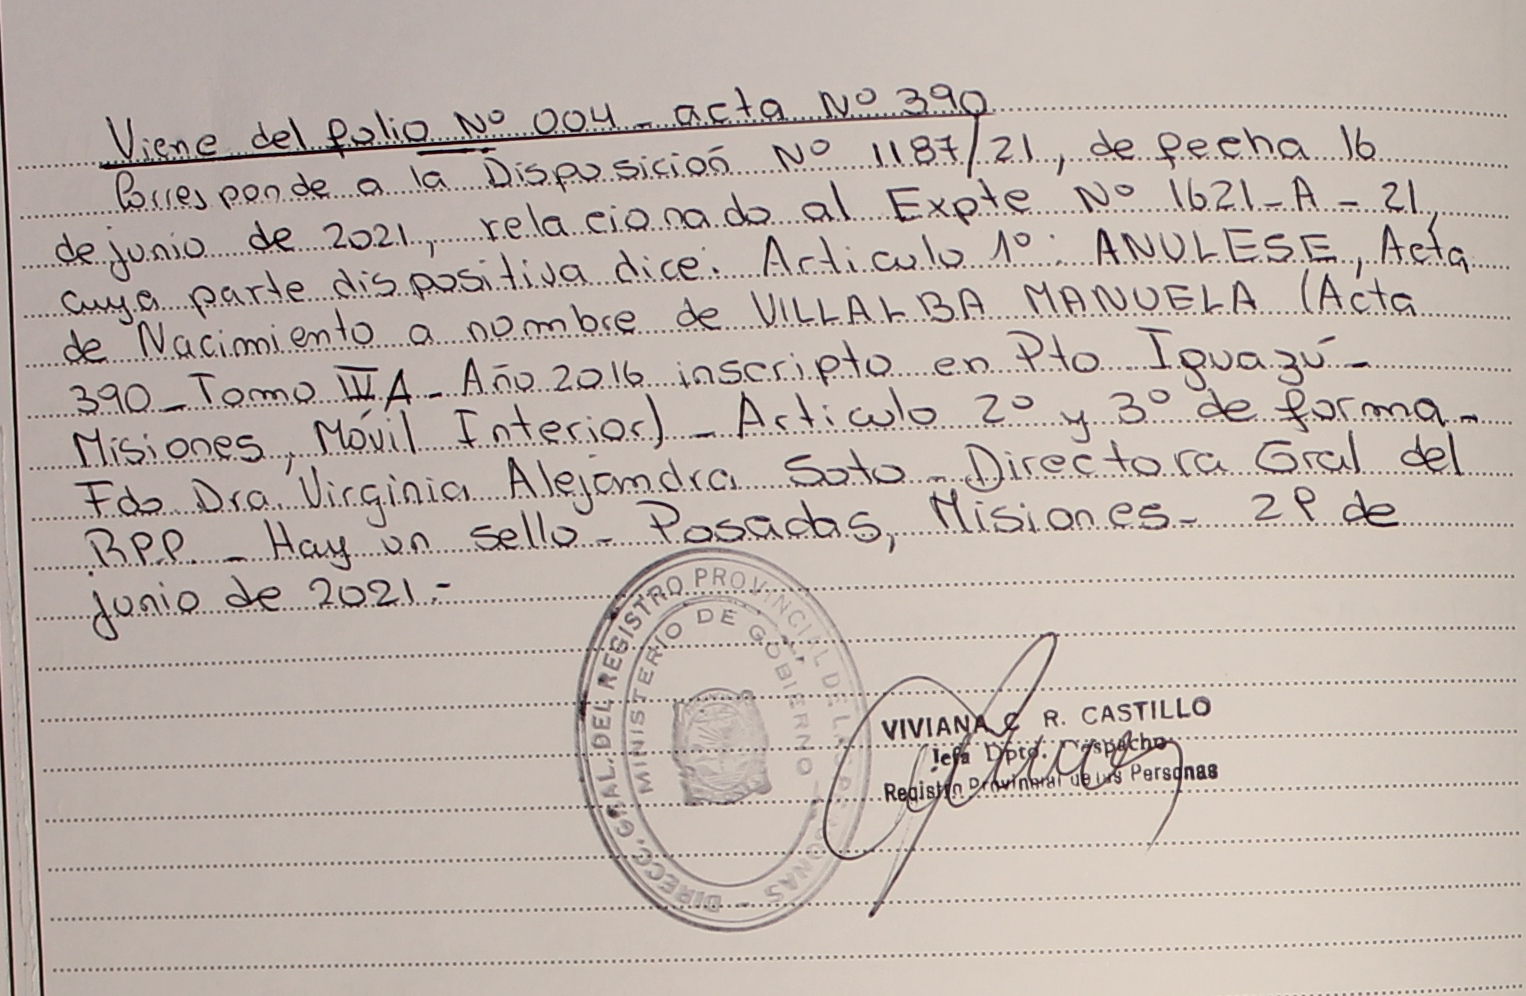 Viene del folio Nº 004 - acta Nº 390
Corresponde a la Disposición Nº 1187/21, de fecha 16
de junio de 2021, relacionado al Expte Nº 1621-A-21,
cuya parte dispositiva dice: Articulo 1º: ANULESE, Acta
de Nacimiento a nombre de VILLALBA MANUELA (Acta
390 - Tomo III A - Año 2016 inscripto en Pto Iguazú -
Misiones, Móvil Interior) - Articulo 2º y 3º de forma -
Fdo Dra. Virginia Alejandra Soto - Directora Gral del
RPP - Hay un sello - Posadas, Misiones - de
junio de 2021.-
DIRECC. GRAL. DEL REGISTRO PROVINCIAL DE LAS PERSONAS
MINISTERIO DE GOBIERNO
VIVIANA C R. CASTILLO
Jefa Dpto. Despacho
Registro Provincial de las Personas